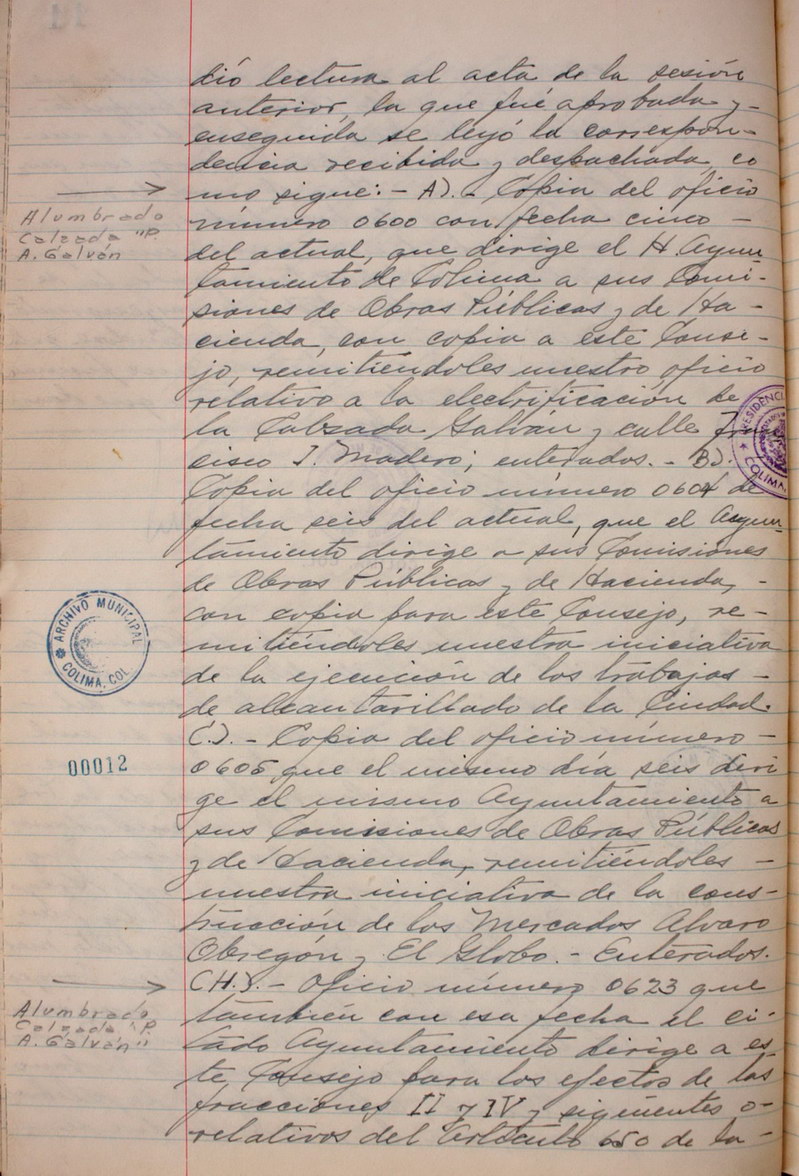 dió lectura al acta de la sesión
anterior, la que fué aprobada y-
enseguida se leyó la correspon-
dencia recibida y despachada, co
mo sigue:- A).- Copia del oficio
número 0600 con fecha cinco -
del actual, que dirige el H. Ayun
tamiento de Colima a sus Comi-
siones de Obras Públicas y de Ha-
cienda, con copia a este Conse-
jo, remitiéndoles nuestro oficio
relativo a la electrificación de
la Calzada Galván y calle Fran
cisco I. Madero; enterados.- B).
Copia del oficio número 0604 de
fecha seis del actual, que el Ayun
tamiento dirige a sus Comisiones
de Obras Públicas y de Hacienda, -
con copia para este Consejo, re-
mitiéndoles nuestra iniciativa
de la ejecución de los trabajos -
de alcantarillado de la Ciudad.
C.).- Copia del oficio número -
0605 que el mismo día seis diri
ge el mismo Ayuntamiento a
sus Comisiones de Obras Públicas
y de Hacienda, remitiéndoles -
nuestra iniciativa de la cons-
trucción de los Mercados Alvaro
Obregón y El Globo.- Enterados.
(H).- Oficio número 0623 que
también con esa fecha el ci-
tado Ayuntamiento dirige a es
te Consejo para los efectos de las
fracciones II y IV y siguientes
relativos del Artículo 650 de la-
Alumbrado
Calzada "P.
A. Galván
ARCHIVO MUNICIPAL
COLIMA, COL.
00012
Alumbrado
Calzada "P.
A. Galván"
PRESIDENCIA
COLIMA